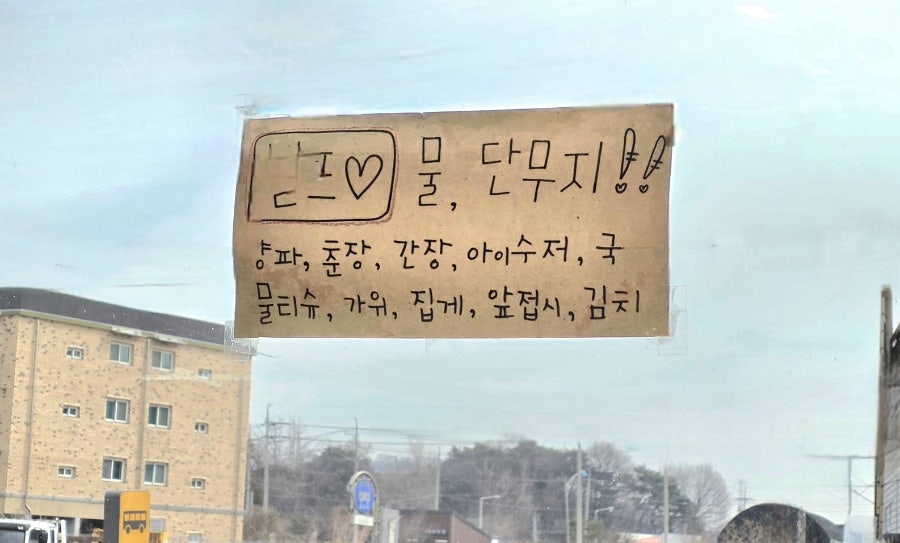 ♡ 물, 단무지!!
양파, 춘장, 간장, 아이수저, 국
물티슈, 가위, 집게, 앞접시, 김치